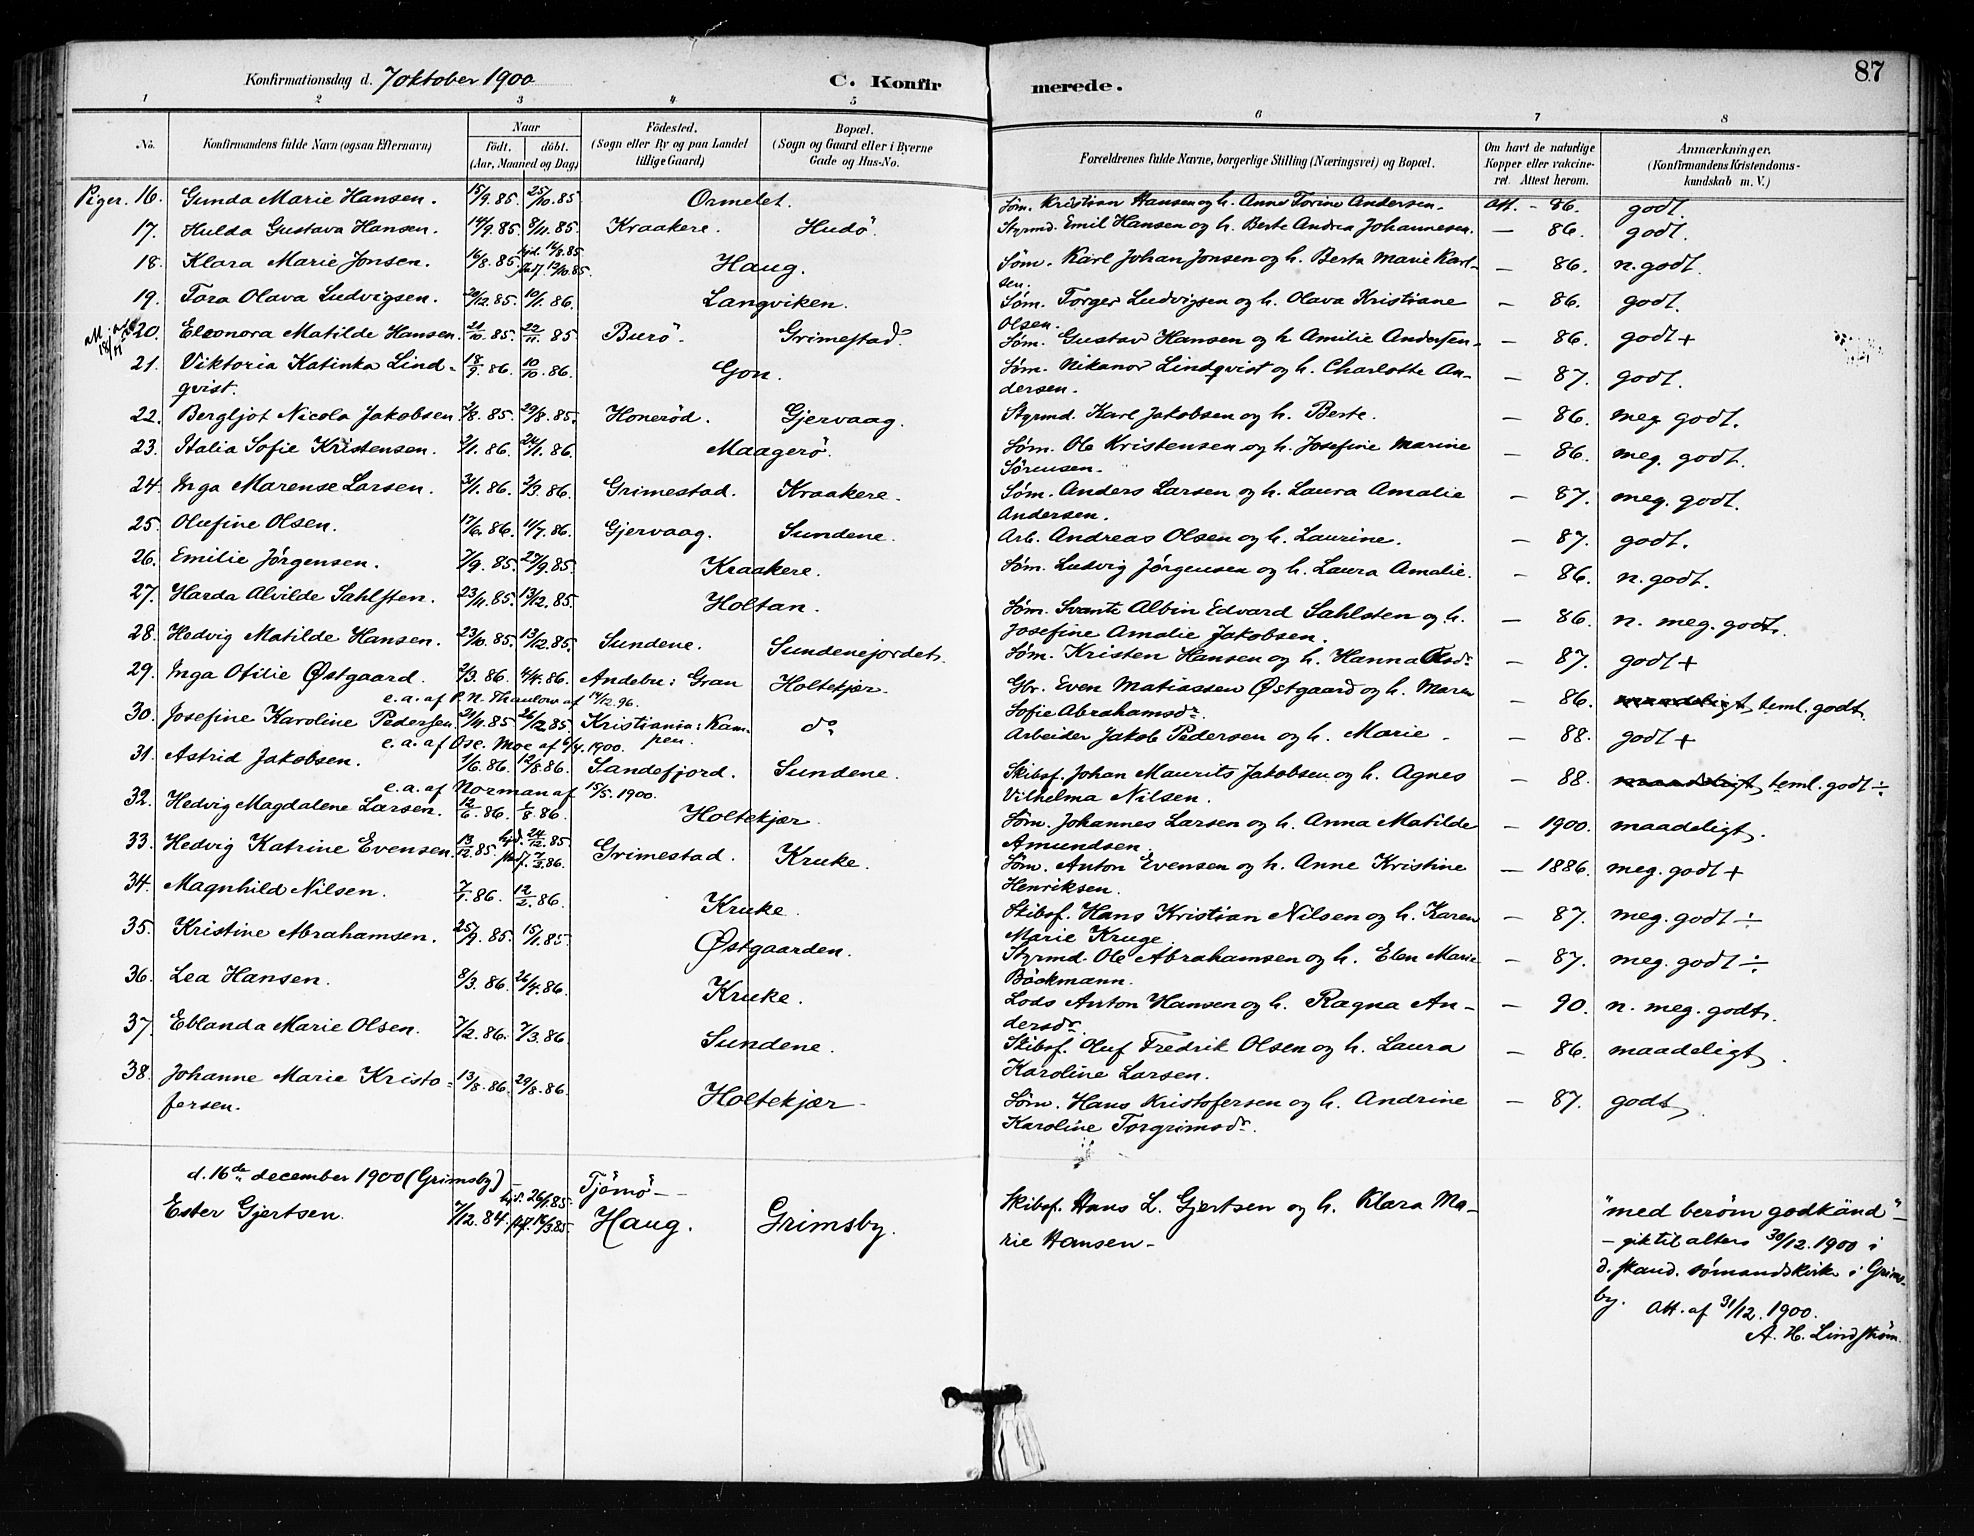 87
Konfirmationsdag d. 7 oktober 1900
C. Konfirmerede.
1 2 3 4 5 6 7 8
No. Konfirmandens fulde Navn (ogsaa Efternavn) Naar født. døbt. (Aar, Maaned og Dag) Födested. (Sogn eller By og paa Landet tillige Gaard) Bopæl. (Sogn og Gaard eller i Byerne Gade og Hus-No. Forældrenes fulde Navne, borgerlige Stilling (Næringsvei) og Bopæl. Om havt de naturlige Kopper eller vakcineret. Attest herom. Anmærkninger. (Konfirmandens Kristendomskundskab m. V.)
Piger. 16. Gunda Marie Hansen. 15/9. 85. 25/10. 85 Ormelet. Søm. Kristian Hansen og h. Anne Torine Andersen. Att. - 86. godt.
17. Hulda Gustava Hansen. 14/9. 85. 8/11. 85 Kraakere. Hudö. Styrmd. Emil Hansen og h. Berte Andrea Johannesen. — 86. godt.
18. Klara Marie Jonsen. 16/8. 85. hjd. 16/8. 85 stedf. 12/10. 85. Haug. Søm. Karl Johan Jonsen og h. Berta Marie Karlsen. — 86. n. godt.
19. Tora Olava Ludvigsen. 20/12. 85. 10/1. 86. Langviken. Søm. Torger Ludvigsen og h. Olava Kristiane Olsen. — 86. godt.
20. Eleonora Matilde Hansen. 21/10. 85. 22/11. 85 Burö. Grimestad. Søm. Gustav Hansen og h Amilie Andersen — 86. godt +
21. Viktoria Katinka Lindqvist. 18/9. 86. 10/10. 86. Gon. Søm. Nikanor Lindqvist og h. Charlotte Andersen. — 87. godt.
22. Bergljot Nicola Jakobsen. 2/8. 85. 29/8. 85. Honerød. Gjervaag. Styrmd. Karl Jakobsen og h. Berte. — 86. meg. godt.
23. Italia Sofie Kristensen. 2/1. 86. 24/1. 86. Maagerö. Søm. Ole Kristensen og h. Josefine Marine Sörensen. — 86. meg. godt.
24. Inga Marense Larsen. 3/1. 86. 2/3. 86. Grimestad. Kraakere. Søm. Anders Larsen og h. Laura Amalie Andersen. — 87. meg. godt.
25. Olufine Olsen. 17/6. 86. 11/7. 86. Gjervaag. Sundene. Arb. Andreas Olsen og h. Laurine. — 87. godt.
26. Emilie Jørgensen. 7/9. 85. 27/9. 85. Kraakere. Søm. Ludvig Jørgensen og h. Laura Amalie. — 86. n. godt.
27. Harda Alvilde Sahlsten. 23/11. 85. 13/12. 85. Holtan. Søm. Svante Albin Edvard Sahlsten og h. Josefine Amalie Jakobsen. — 86. n. meg. godt.
28. Hedvig Matilde Hansen. 23/10. 85. 13/12. 85. Sundene. Sundenejordet. Søm. Kristen Hansen og h. Hanna Olsdr — 87. godt +
29. Inga Otilie Østgaard. 2/3. 86. 4/4. 86. Andebu: Gran Holtekjær. Gbr. Even Matiassen Østgaard og h. Maren Sofie Abrahamsdr. — 86. maadeligt teml. godt.
e. a. af P. N. Thaulow af 14/12. 96.
30. Josefine Karoline Pedersen 21/11. 85 26/12. 85. Kristiania: Kampen. do Arbeider Jakob Pedersen og h. Marie - — 88. godt +
e. a. af Osc. Moe af 6/4. 1900.
31. Astrid Jakobsen. 1/6. 86. 12/8. 86. Sandefjord. Sundene. Skibsf. Johan Maurits Jakobsen og h. Agnes Vilhelma Nilsen. — 88. maadeligt teml. godt ÷
e. a. af Norman af 15/5. 1900.
32. Hedvig Magdalene Larsen. 12/6. 86. 1/8. 86. Holtekjær. Søm. Johannes Larsen og h. Anna Matilde Amundsen. — 1900. maadeligt.
33. Hedvig Katrine Evensen. 13/12. 85. hjd. 24/12. 85 stedf. 7/3. 86. Grimestad. Kruke. Søm. Anton Evensen og h. Anne Kristine Henriksen. — 1886. meg. godt +
34. Magnhild Nilsen. 7/1. 86. 12/2. 86. Kruke. Skibsf. Hans Kristian Nilsen og h. Karen Marie Kruge. — 87. meg. godt ÷
35. Kristine Abrahamsen. 25/9. 85. 15/11. 85 Østgaarden. Styrmd. Ole Abrahamsen og h. Elen Marie Böckmann. — 87. meg. godt ÷
36. Lea Hansen. 8/3. 86. 26/4. 86. Kruke. Lods Anton Hansen og h. Ragna Andersdr. — 90. n. meg. godt.
37. Eblanda Marie Olsen. 7/2. 86. 7/3. 86 Sundene. Skibsf. Oluf Fredrik Olsen og h. Laura Karoline Larsen. — 86. maadeligt.
38. Johanne Marie Kristofersen. 13/8. 86. 29/8. 86. Holtekjær. Søm. Hans Kristofersen og h. Andrine Karoline Torgrimsdr. — 87. godt.
d. 16de december 1900 (Grimsby) —
Ester Gjertsen. 7/12. 84. hjd. 26/1. 85. Tjömö — Haug. Grimsby. Skibsf. Hans L. Gjertsen og h. Klara Marie Hansen — "med beröm godkänd" —
— gik til alters 30/12. 1900 i
d. skand. sømandskirke i Grimsby.
Att. af 31/12. 1900.
A. H. Lindstrøm.